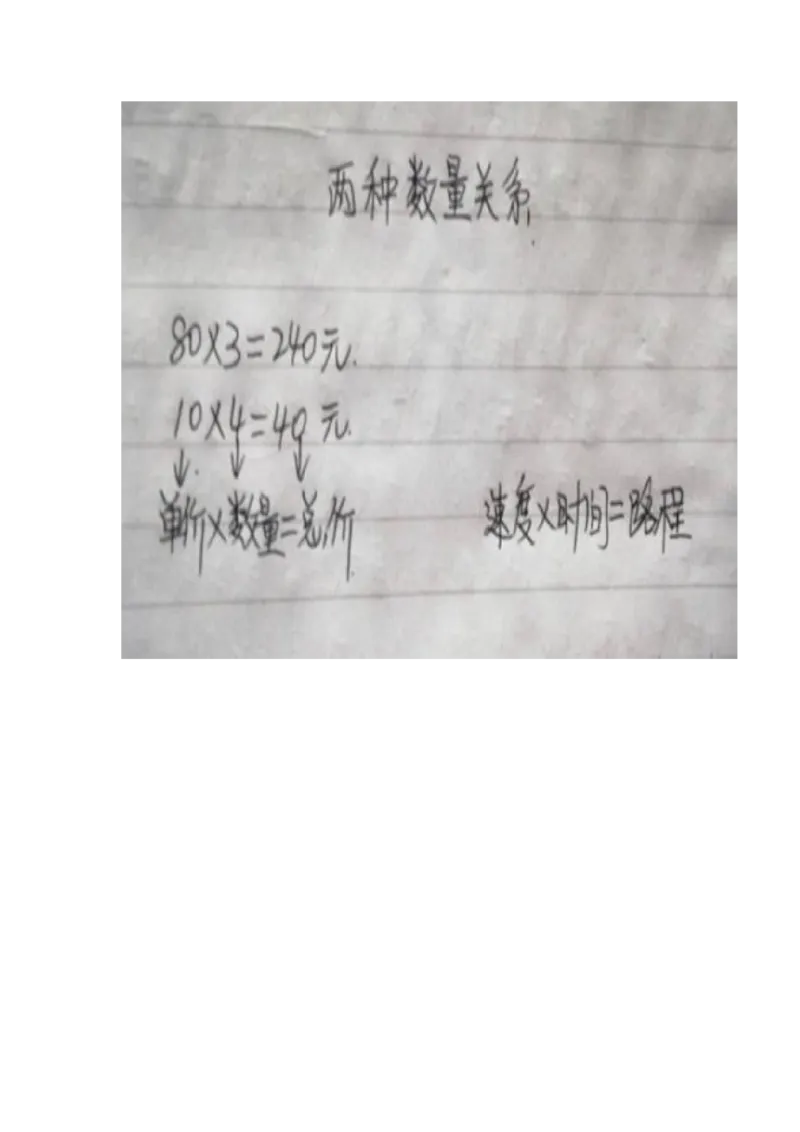 两种数量关系
80×3=240元.
10×4=40元.
↓ ↓ ↓
单价×数量=总价 速度×时间=路程